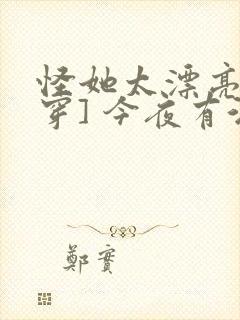 怪她太漂亮
穿]今夜有
鄭實